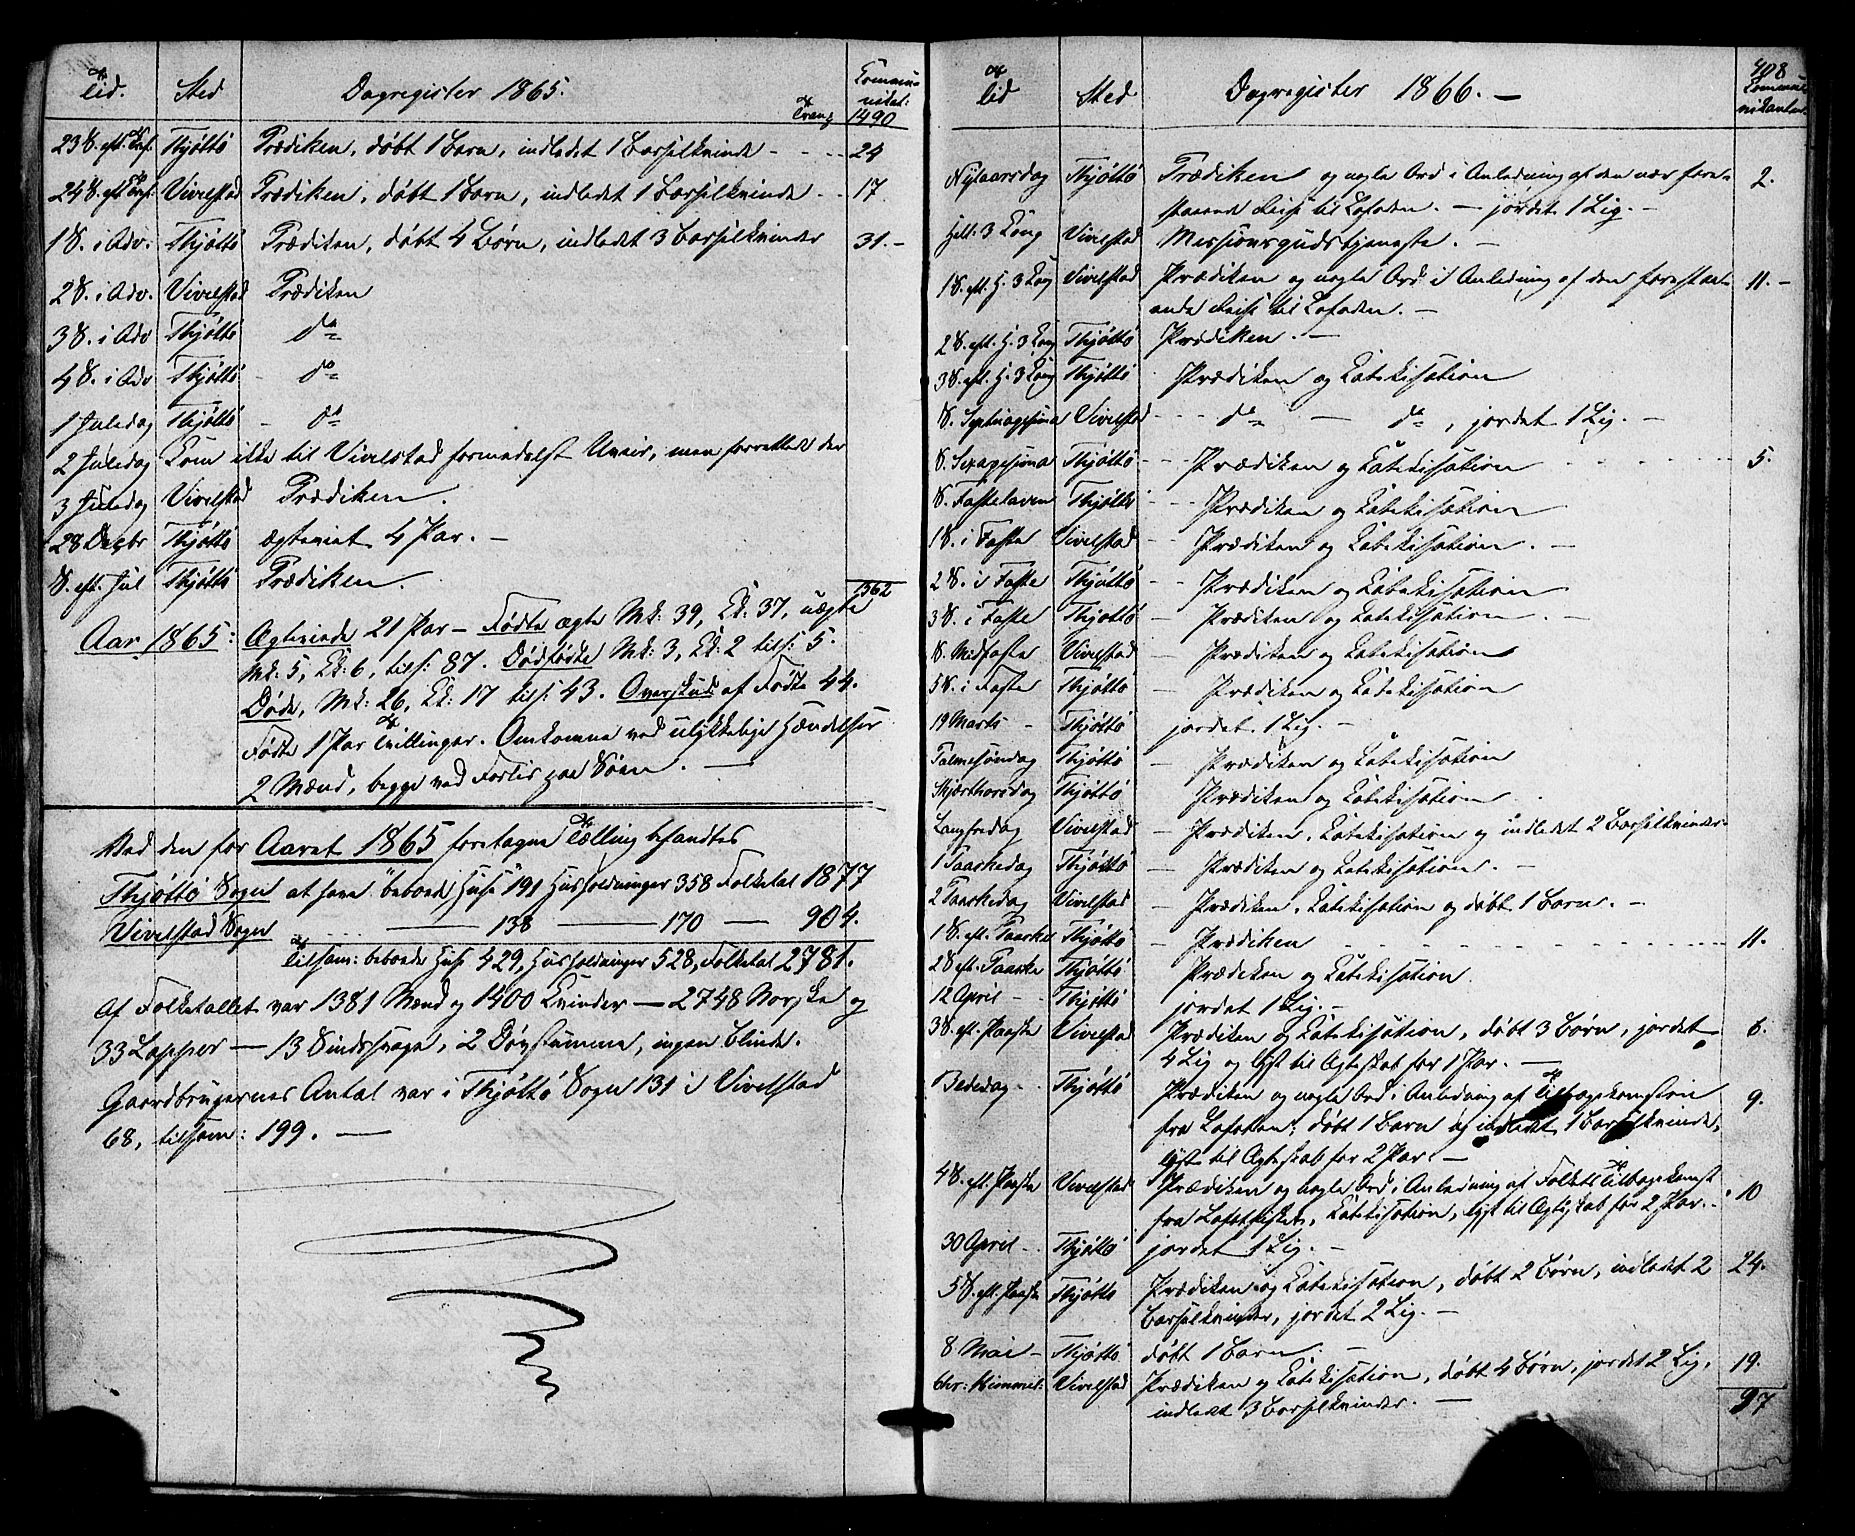 Tid. Sted Dagregister 1865. Communi-
nikat:
Transp. 1490
23 S. eft. Tref. Thjøttø Prædiken, døbt 1 Barn, indledet 1 Barselkvinde - - - 24
24 S. eft. Tref. Vivelstad Prædiken, døbt 1 Barn, indledet 1 Barselkvinde - - 17
1 S. i Adv. Thjøttø Prædiken, døbt 4 Børn, indledet 3 Barselkvinder 31. -
2 S. i Adv. Vivelstad Prædiken
3 S. i Adv Thjøttø do
4 S. i Adv Thjøttø - do
1 Juledag Thjøttø - do
2 Juledag Kom ikke til Vivelstad formedelst Uveir, men forrettede der
3 Juledag Vivelstad Prædiken.
28 Decbr Thjøttø ægteviet 4 Par. -
S. eft. Jul Thjøttø Prædiken.
1562
Aar 1865: Ægteviede 21 Par - Fødte ægte Mk: 39, Kk: 37, uægte
Mk: 5, Kk: 6, tils: 87. Dødfødte Mk: 3, Kk: 2 tils: 5.
Døde, Mk: 26, Kk: 17 tils: 43. Overskud af Fødte 44.
Fødte 1 Par Tvillinger. Omkomne ved ulykkelige Hændelser
2 Mænd, begge ved Forlis paa Søen. -
Ved den for Aaret 1865 foretagne Tælling befandtes
Thjøttø Sogn at have beboede Huse 191 Husholdninger 358 Folketal 1877
Vivelstad Sogn - 138 - 170 - 904.
Tilsam: beboede Huse 429, Husholdninger 528, Folketal 2781.
Af Folketallet var 1381 Mænd og 1400 Kvinder - 2748 Norske og
33 Lapper - 13 Sindssvage, 2 Døvstumme, ingen Blinde.
Gaardbrugernes Antal var i Thjøttø Sogn 131 i Vivelstad
68, tilsam: 199. -
408
Tid Sted Dagregister 1866. - Communi-
nikanter
Nytaarsdag Thjøttø Prædiken og nogle Ord i Anledning af den nær fore- 2.
staaende Reise til Lofoden. - jordet 1 Lig. -
Hell. 3 Kong Vivelstad Missionsgudstjeneste. -
1 S. eft. H. 3 Kong Vivelstad Prædiken og nogle Ord i Anledning af den forestaa- 11. -
ende Reise til Lofoden. -
2 S. eft. H. 3 Kong Thjøttø Prædiken. -
3 S. eft. H. 3 Kong Thjøttø Prædiken og Katekisation
S. Septuagesima Vivelstad - - do - do, jordet 1 Lig. -
S. Sexagesima Thjøttø - - Prædiken og Katekisation - - - - 5.
S. Fastelaven Thjøttø - - Prædiken og Katekisation
1 S. i Faste Vivelstad - Prædiken og Katekisation. -
2 S. i Faste Thjøttø - - Prædiken og Katekisation
3 S. i Faste Thjøttø - Prædiken og Katekisation. -
S. Midfaste Vivelstad - Prædiken og Katekisation
5 S. i Faste Thjøttø - Prædiken og Katekisation
19 Marts - Thjøttø jordet 1 Lig. -
Palmesøndag Thjøttø - Prædiken og Katekisation
Skjærthorsdag Thjøttø Prædiken og Katekisation
Langfredag Vivelstad - Prædiken, Katekisation og indledet 2 Barselkvinder
1 Paaskedag Thjøttø - Prædiken og Katekisation. -
2 Paaskedag Vivelstad - Prædiken, Katekisation og døbt 1 Barn. -
1 S. eft. Paaske Thjøttø - Prædiken - - - - 11.
2 S. eft. Paaske Thjøttø Prædiken og Katekisation.
12 April - Thjøttø jordet 1 Lig. -
3 S. eft. Paaske Vivelstad Prædiken og Katekisation, døbt 3 Børn, jordet 6.
4 Lig og lyst til Ægteskab for 1 Par. -
Bededag - Thjøttø Prædiken og nogle Ord i Anledning af Tilbagekomsten 9.
fra Lofoten, døbt 1 Barn og indledet 1 Barselkvinde,
lyst til Ægteskab for 2 Par. -
4 S. eft. Paaske Vivelstad Prædiken og nogle Ord i Anledning af Folkets Tilbagekomst 10
fra Lofotfisket, Katekisation, lyst til Ægteskab for 2 Par.
30 April - Thjøttø jordet 1 Lig. -
5 S. eft. Paaske Thjøttø Prædiken og Katekisation, døbt 2 Børn, indledet 2 24.
Barselkvinder, jordet 2 Lig. -
8 Mai - Thjøttø døbt 1 Barn. -
Chr: Himmel: Vivelstad Prædiken og Katekisation, døbt 4 Børn, jordet 2 Lig, 19.
indledet 3 Barselkvinder. -
97